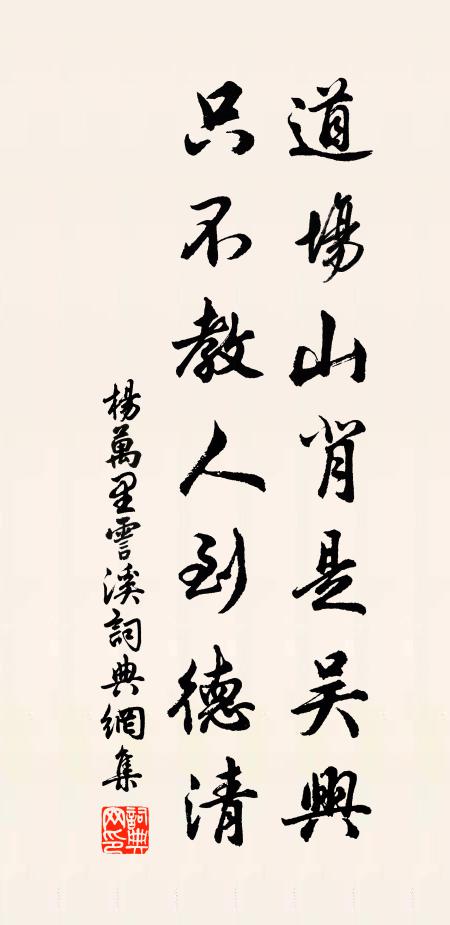 道場山背是吴興
只不教人到德清
楊萬里霅溪詞典網集
詞典网印